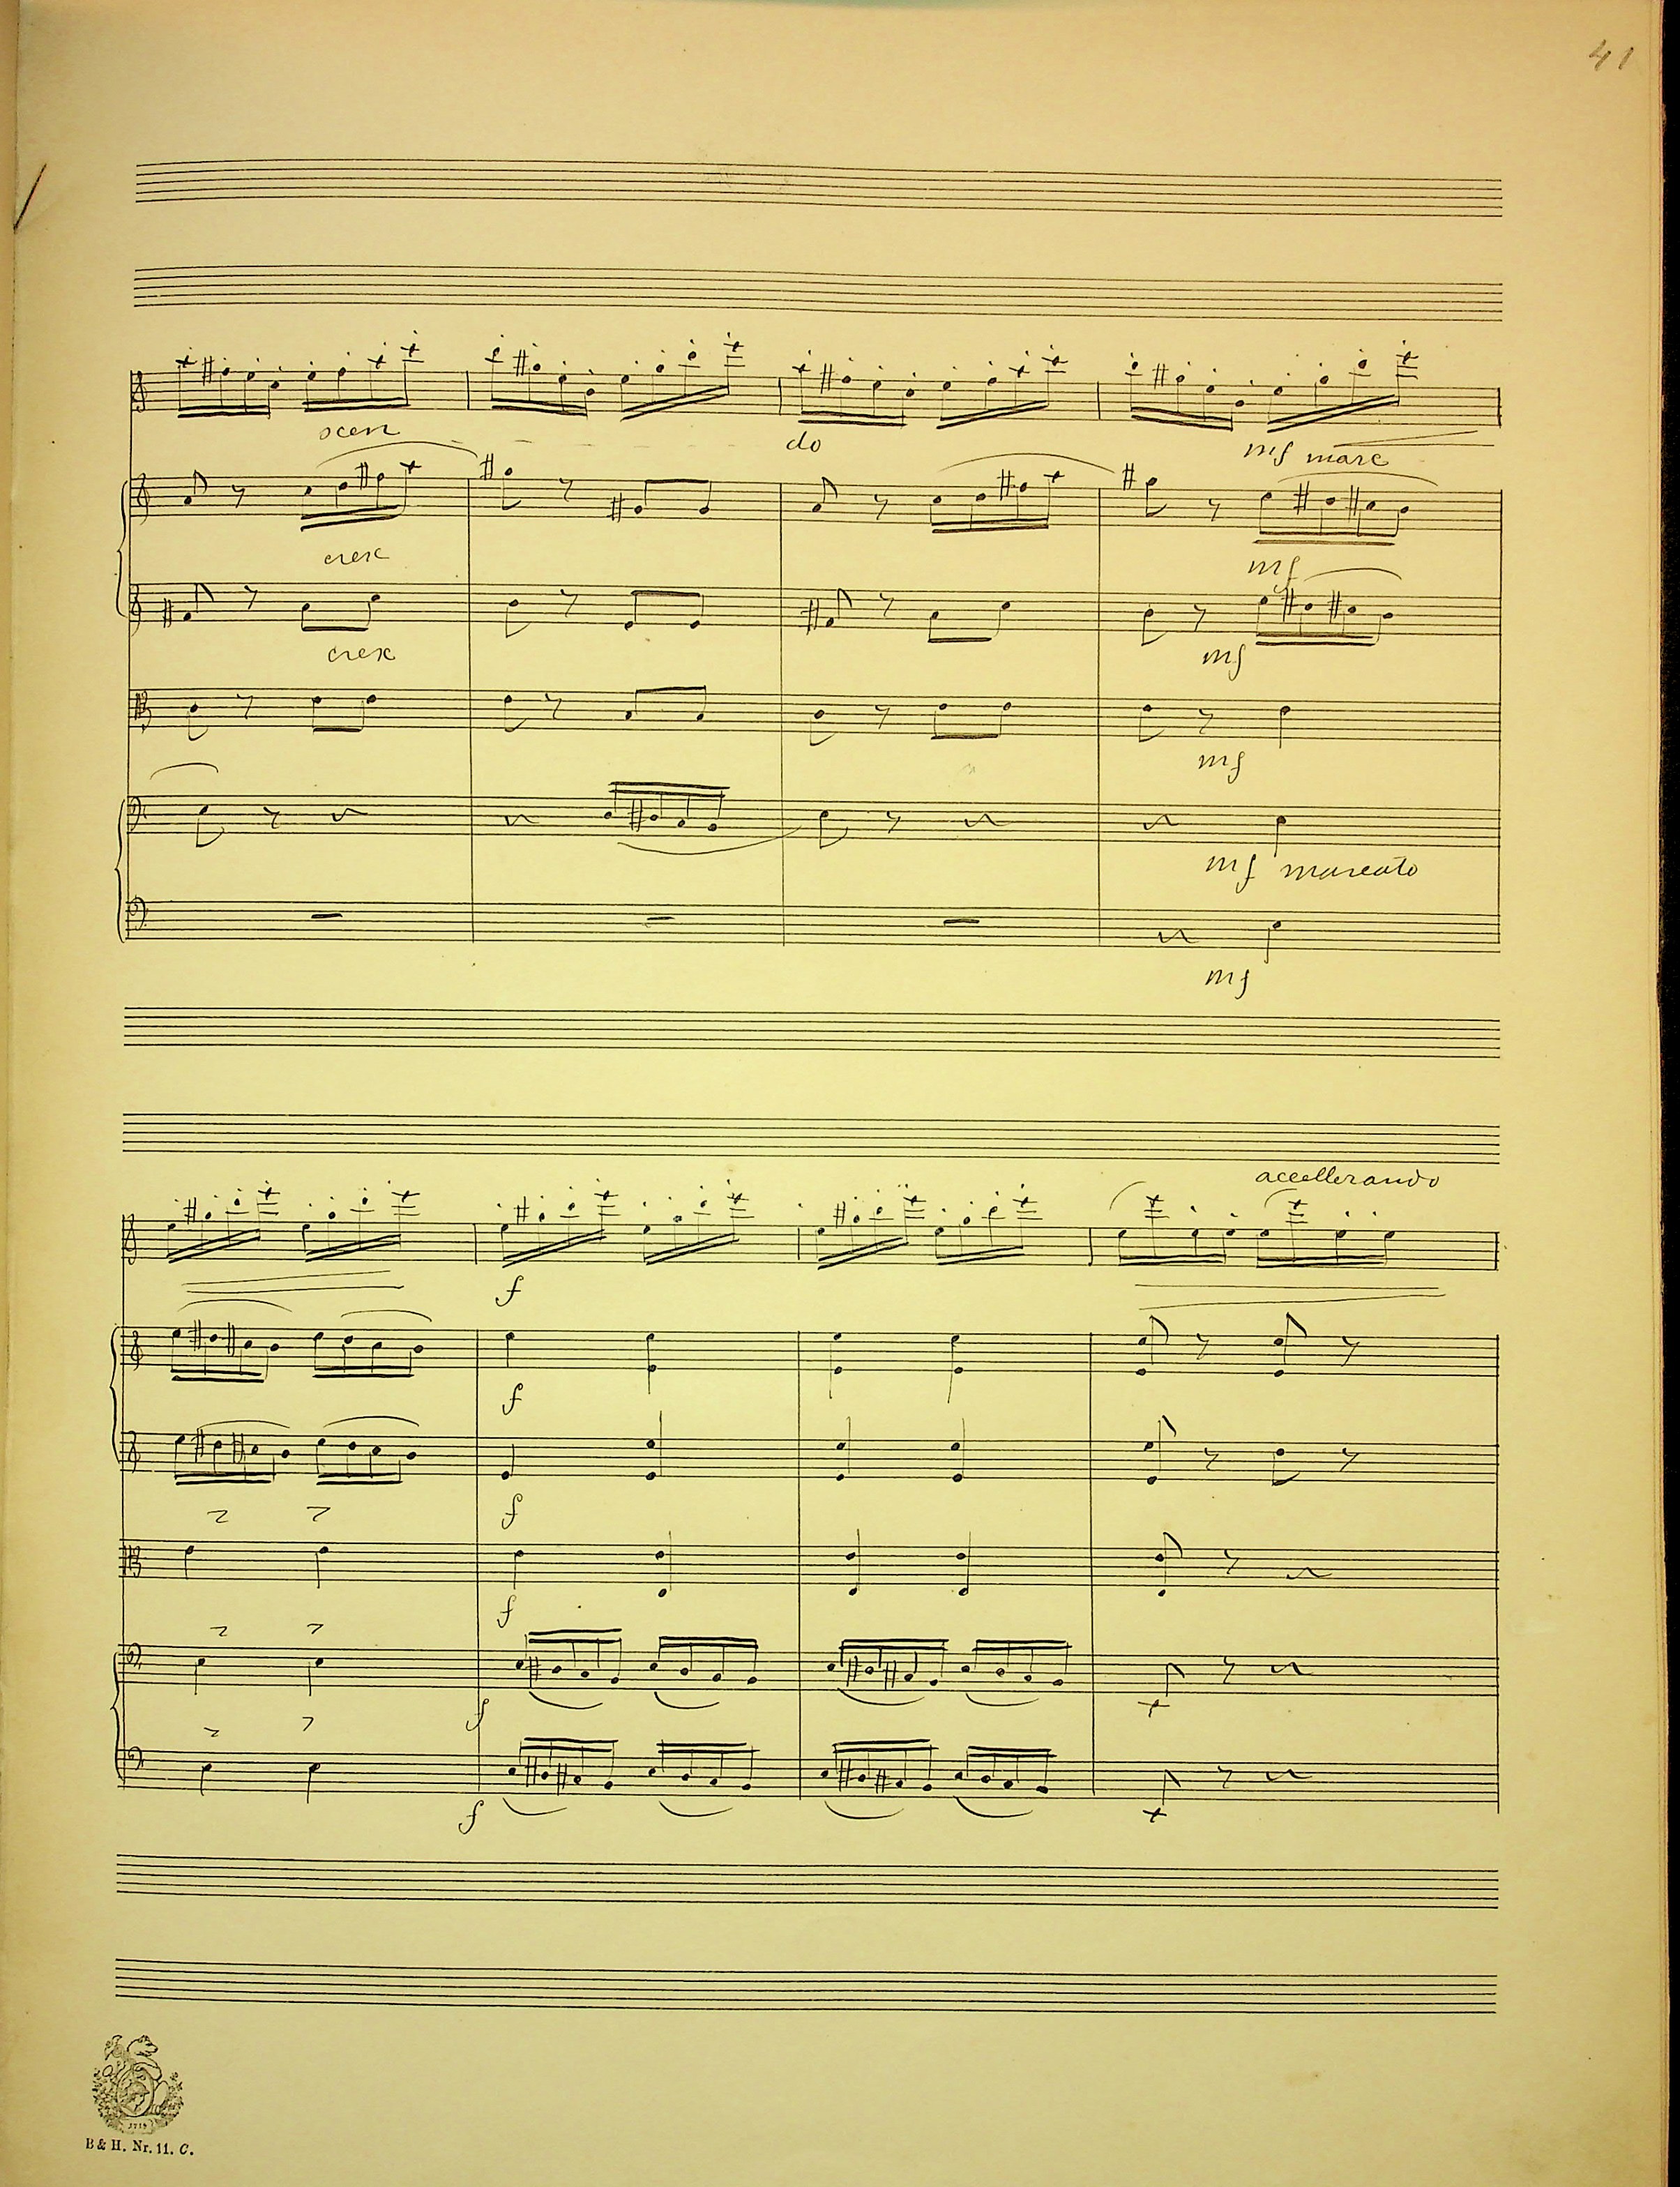 41
scen do
mf marc
cresc
mf
cresc
mf
mf
mf marcato
mf
accellerando
f
f
f
f
f
f
1719
B & H. Nr. 11. C.